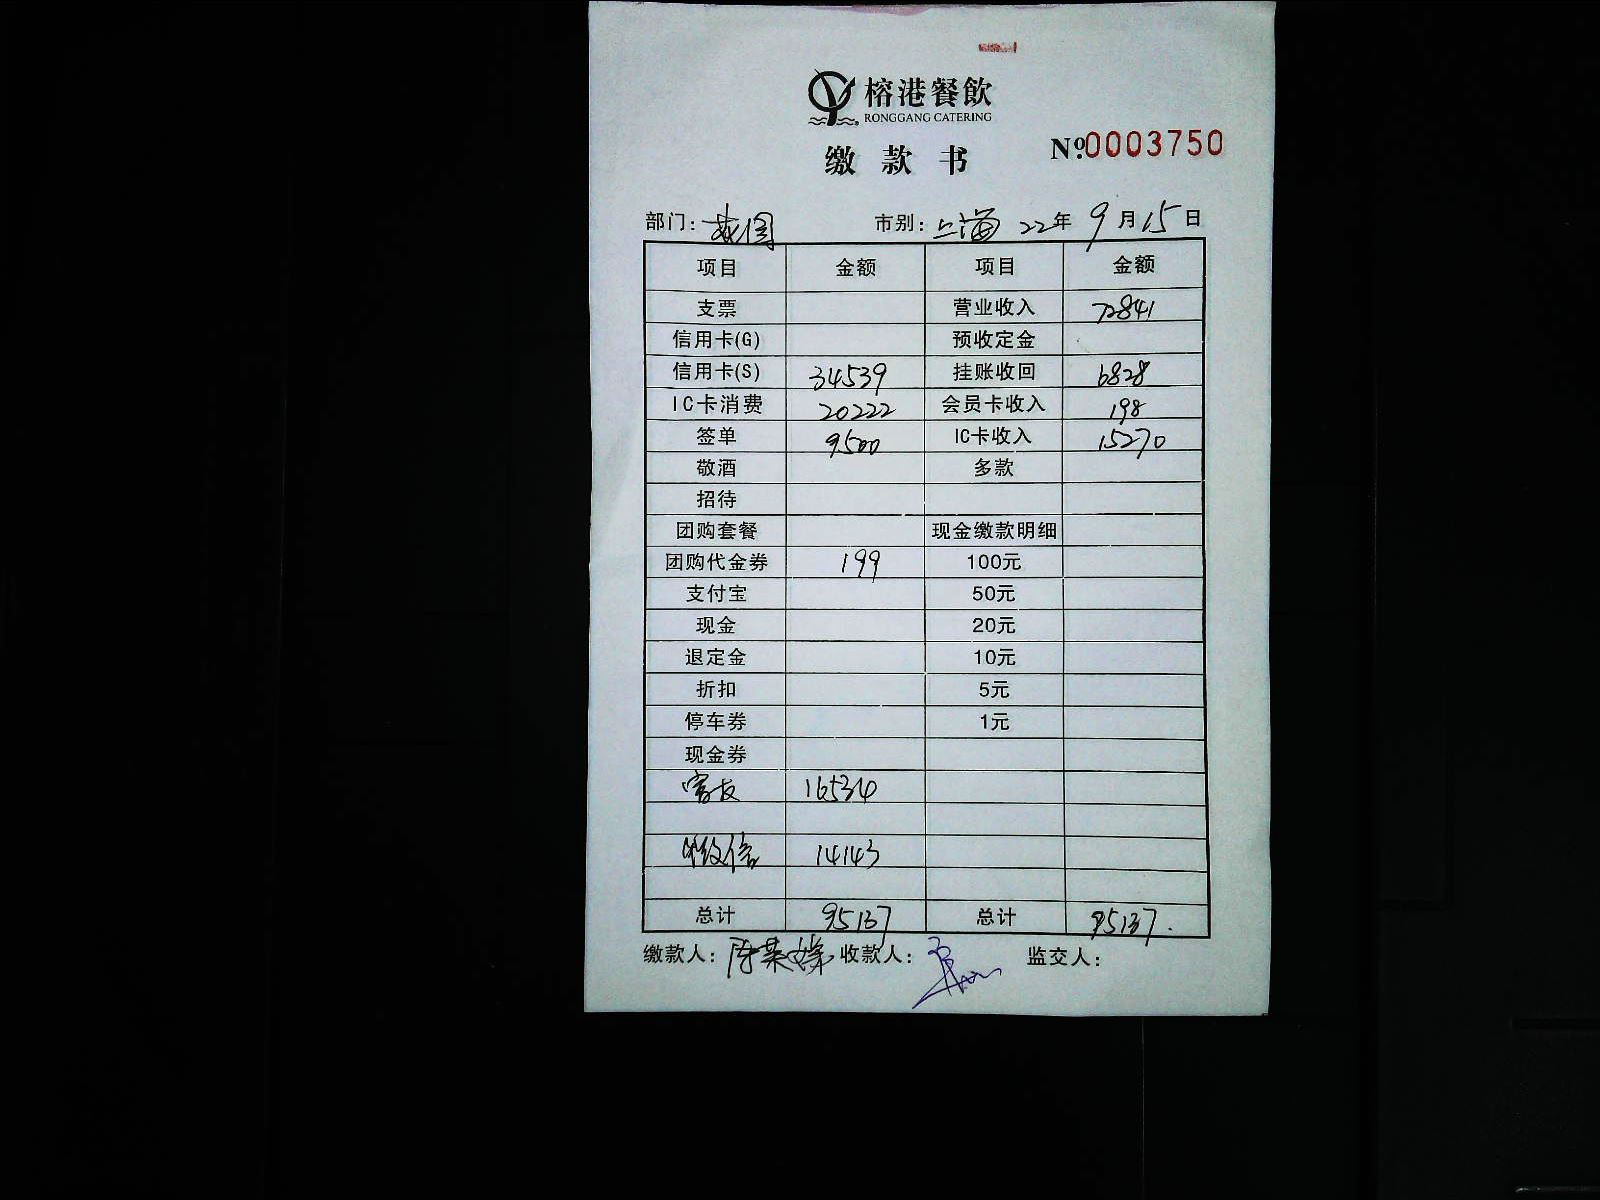 榕港餐飲
RONGGANG CATERING
缴款书
№0003750
部门: 市别: 上海 22年 9月15日
项目 金额 项目 金额
支票 营业收入 72841
信用卡(G) 预收定金
信用卡(S) 34539 挂账收回 6828
IC卡消费 20222 会员卡收入 198
签单 9500 IC卡收入 15270
敬酒 多款
招待
团购套餐 现金缴款明细
团购代金券 199 100元
支付宝 50元
现金 20元
退定金 10元
折扣 5元
停车券 1元
现金券
16534
微信 14143
总计 95137 总计 95137.
缴款人: 收款人: 监交人: